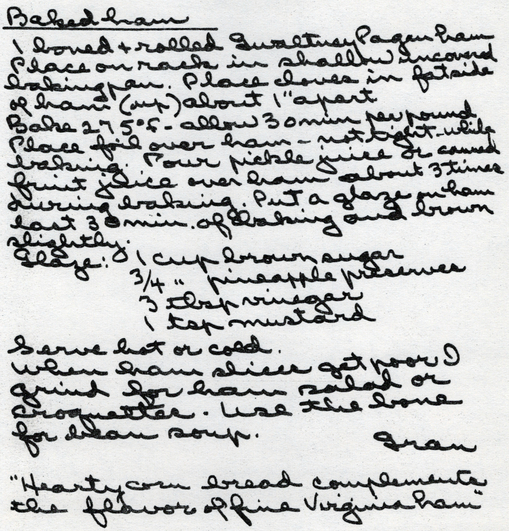 Baked ham
1 boned + rolled Gwaltney Pagan ham
Place on rack in shallow uncovered
baking pan. Place cloves in fatside
of ham (up) about 1" apart
Bake 275°F - allow 30 min per pound
Place foil over ham - not tight - while
baking. Pour pickle juice or canned
fruit juice over ham about 3 times
during baking. Put a glaze on ham
last 30 min. of baking and brown
slightly.
Glaze: 1 cup brown sugar
3/4 " pineapple preserves
3 tbsp vinegar
1 tsp mustard
Serve hot or cold.
When ham slices get poor I
grind for ham salad or
croquettes. Use the bone
for bean soup.
Gran
"Hearty corn bread complements
the flavor of fine Virginia ham"